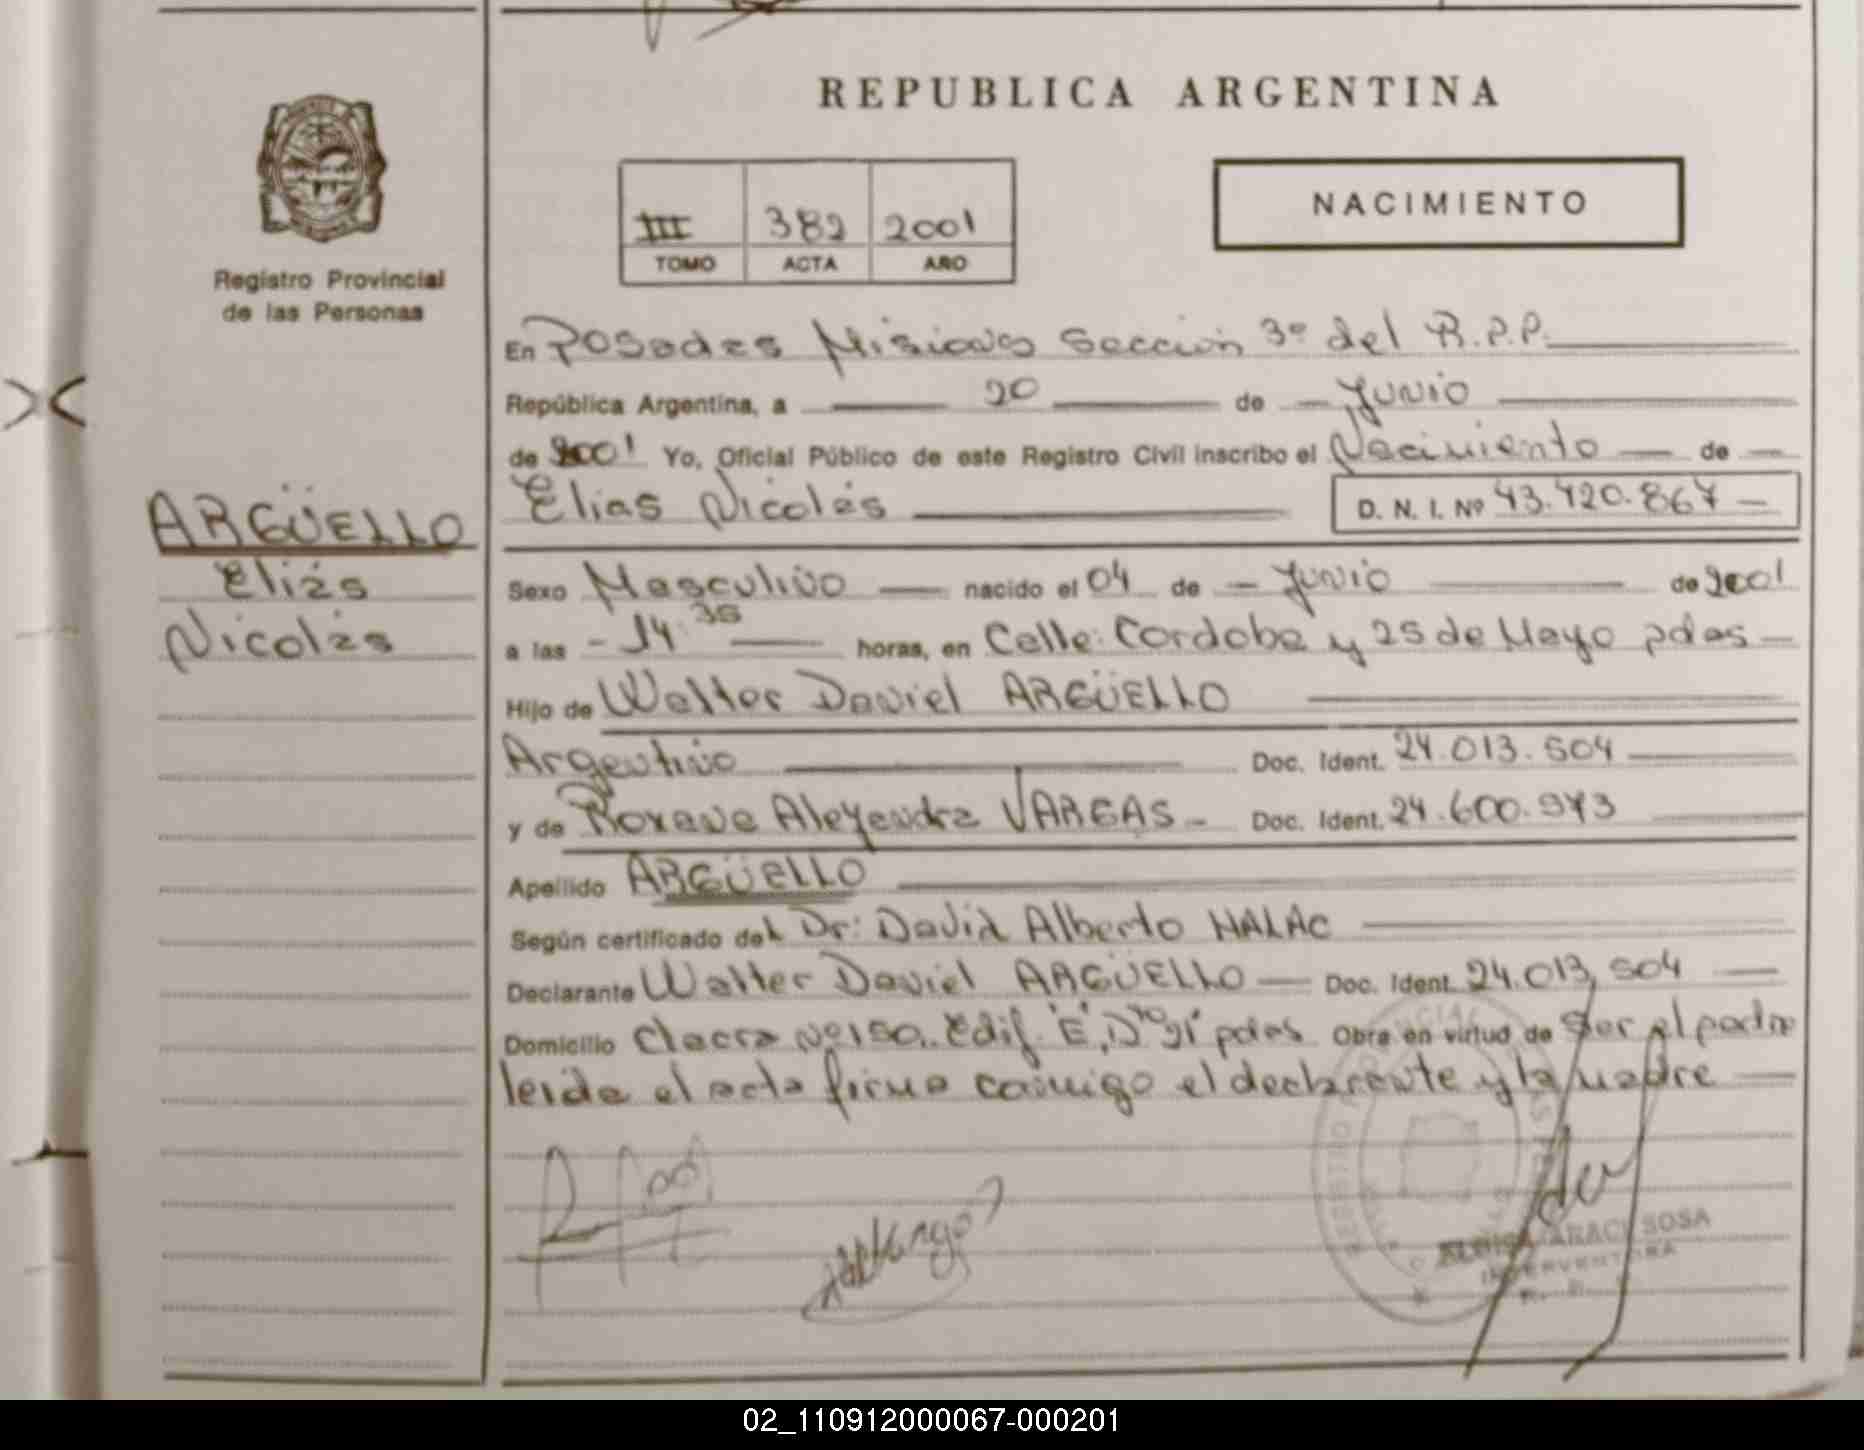 REPUBLICA ARGENTINA
NACIMIENTO
III 382 2001
TOMO ACTA AÑO
Registro Provincial
de las Personas
En Posadas Misiones Sección 3º del R.P.P.
República Argentina, a 20 de Junio
de 2001 Yo, Oficial Público de este Registro Civil inscribo el Nacimiento de
Elias Nicolás D. N. I. Nº 43.420.867
ARGÜELLO
Eliás
Nicolás
Sexo Masculino nacido el 04 de Junio de 2001
a las 14:35 horas, en Calle: Cordoba y 25 de Mayo pdas
Hijo de Walter Daniel ARGÜELLO
Argentino Doc. Ident. 24.013.504
y de Roxana Aleyandra VARGAS Doc. Ident. 24.600.973
Apellido ARGÜELLO
Según certificado del Dr: David Alberto HALAC
Declarante Walter Daniel ARGÜELLO Doc. Ident. 24.013.504
Domicilio Chacra Nº150. Edif. "E", Dto "J1" pdas Obra en virtud de ser el padre
leida el acta firma conmigo el declarante y la madre
ARACI SOSA
INTERVENTORA
02_110912000067-000201